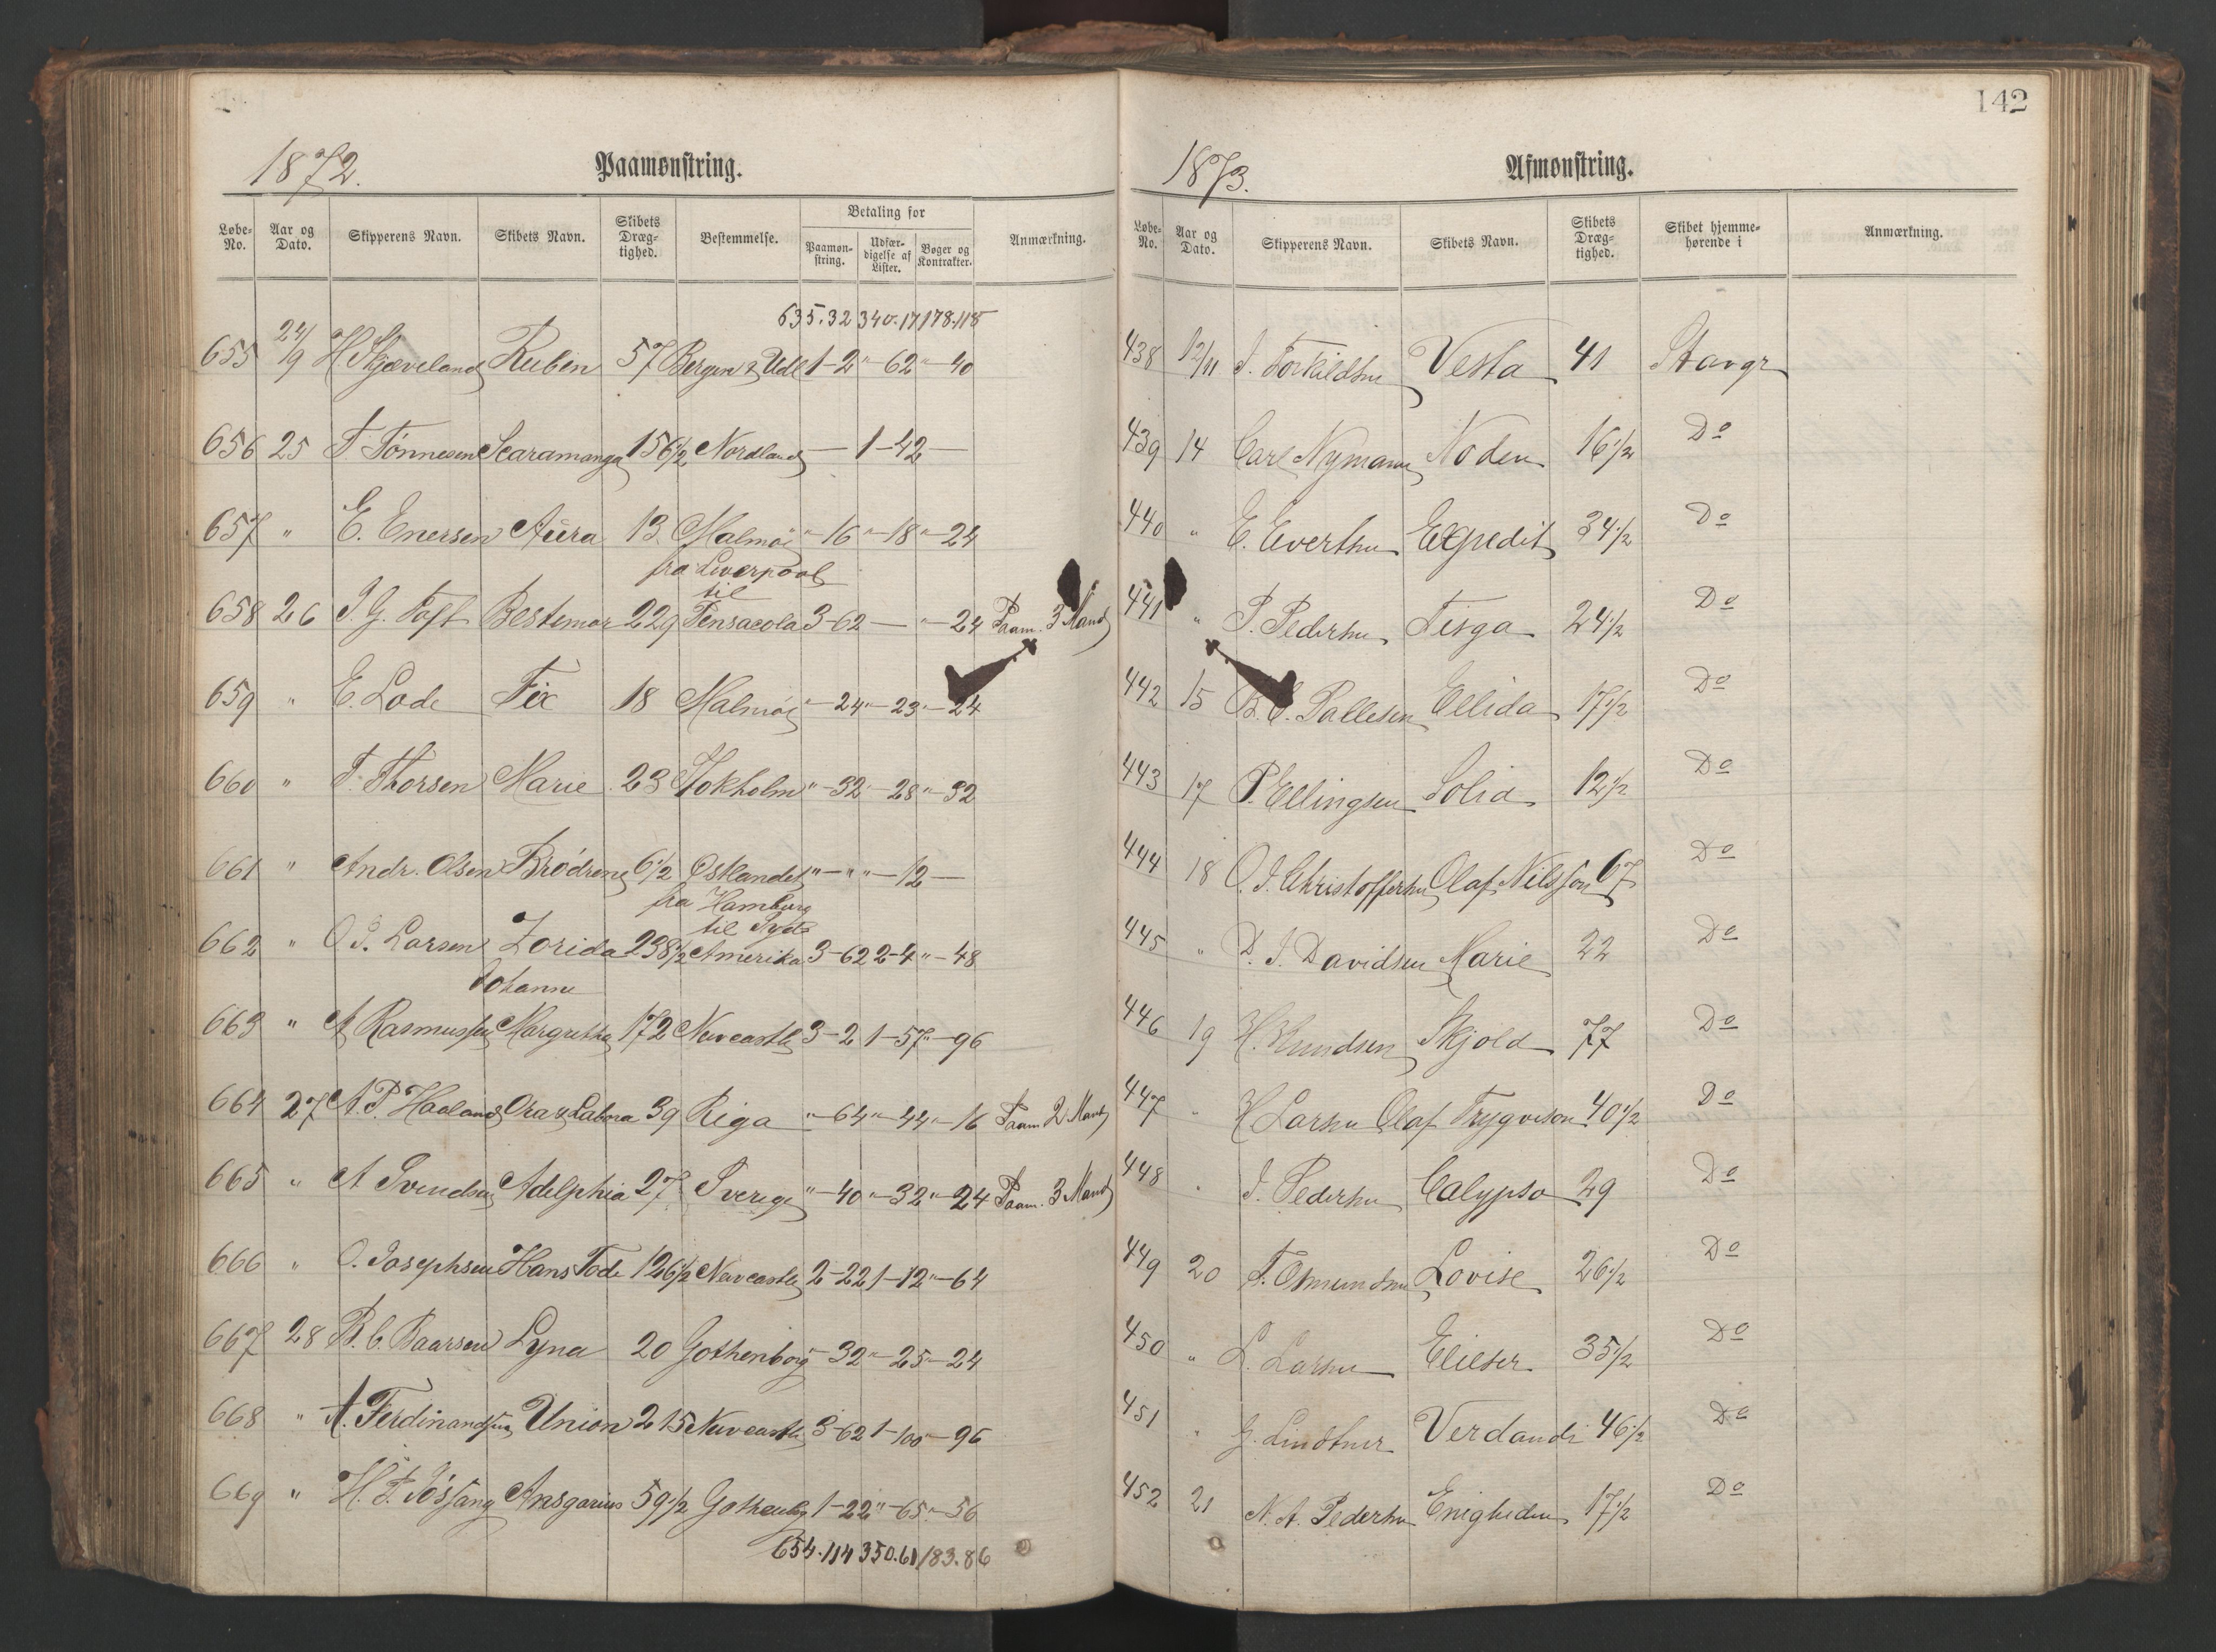 142
1872.
Paamønstring.
Løbe-No. Aar og Dato. Skipperens Navn. Skibets Navn. Skibets Dræg-tighed. Bestemmelse. Betaling for Paamøn-string. Udfær-digelse af Lister. Bøger og Kontrakter. Anmærkning.
635.32 340.17 178.118
655 24/9 H. Skjæveland Ruben 57 Bergen & Udl 1-2 "-62 "-40
656 25 T. Tönnesen Scaramanga 156 1/2 Nordland — 1-42 —
657 " E. Enersen Aura 13 Malmö "-16 "-18 "-24
fra Liverpool
til
658 26 J. G. Bestemor 229 Pensacola 3-62 — "-24 Paam. 3 Mand
659 " E. Lode Fix 18 Malmö "-24 "-23 "-24
660 " T. Thorsen Marie 23 Stokholm "-32 "-28 "-32
661 " Andr. Olsen Brödrene 6 1/2 Östlandet "-" "-12 —
fra Hamburg
til Syd
662 " O. S. Larsen Zorida 238 1/2 Amerika 3-62 2-4 "-48
Johanne
663 " A Rasmussen Margretha 172 Newcastle 3-2 1-57 "-96
664 27 A. P. Haaland Ora & Labora 39 Riga "-64 "-44 "-16 Paam 2 Mand
665 " A Svendsen Adelphia 27 Sverige "-40 "-32 "-24 Paam. 3 Mand
666 " O. Josephsen Hans Tode 126 1/2 Newcastle 2-22 1-12 "-64
667 28 B. C. Baarsen Lyna 20 Gothenborg "-32 "-25 "-24
668 " A. Ferdinandsen Union 215 Newcastle 3-62 1-100 "-96
669 " H. T. Jössang Ansgarius 59 1/2 Gothenbg 1-22 "-65 "-56
654.114 350.61 183.86
1873.
Afmønstring.
Løbe-No. Aar og Dato. Skipperens Navn. Skibets Navn. Skibets Dræg-tighed. Skibet hjemme-hørende i Anmærkning.
438 12/11 J. Torkildsen Vesta 41 Stavgr
439 14 Carl Nymann Noden 16 1/2 Do
440 " E. Evertsen Expedit 34 1/2 Do
441 " P. Pedersen Tisga 24 1/2 Do
442 15 B. C. Pallesen Ellida 17 1/2 Do
443 17 P. Ellingsen Solid 12 1/2 Do
444 18 O. J. Christoffersen Olaf Nilssön 67 Do
445 " D. J. Davidsen Marie 22 Do
446 19 H. Knudsen Skjold 77 Do
447 " H Larsen Olaf Trygveson 40 1/2 Do
448 " J. Pedersen Calypso 29 Do
449 20 T. Osmundsen Lovise 26 1/2 Do
450 " L. Larsen Elieser 35 1/2 Do
451 " G. Lindtner Verdandi 46 1/2 Do
452 21 N. A. Pedersen Enigheden 17 1/2 Do